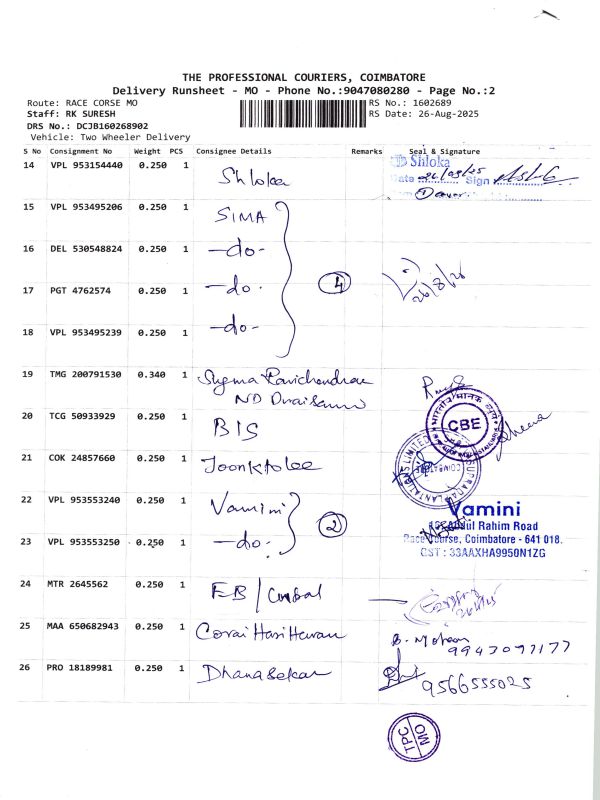 THE PROFESSIONAL COURIERS, COIMBATORE
Delivery Runsheet - MO - Phone No.:9047080280 - Page No.:2
Route: RACE CORSE MO
RS No.: 1602689
Staff: RK SURESH
RS Date: 26-Aug-2025
DRS No.: DCJB160268902
Vehicle: Two Wheeler Delivery
S No Consignment No Weight PCS Consignee Details Remarks Seal & Signature
14 VPL 953154440 0.250 1 Shloka
Shloka
Date 26/08/25 Sign
15 VPL 953495206 0.250 1 SIMA
16 DEL 530548824 0.250 1 -do-
17 PGT 4762574 0.250 1 -do- 4 26/8/25
18 VPL 953495239 0.250 1 -do-
19 TMG 200791530 0.340 1 Sugma Ravichendran
ND Duraisami
20 TCG 50933929 0.250 1 BIS CBE
21 COK 24857660 0.250 1 Joonktolee
22 VPL 953553240 0.250 1 Vamini
23 VPL 953553250 0.250 1 -do- 2
Vamini
Abdul Rahim Road
Race Course, Coimbatore - 641 018.
GST : 33AAXHA9950N1ZG
24 MTR 2645562 0.250 1 EB /
25 MAA 650682943 0.250 1 Corai Hari Haran B. Mohan
9947097177
26 PRO 18189981 0.250 1 Dhanasekar 9566555025
TPC
MO